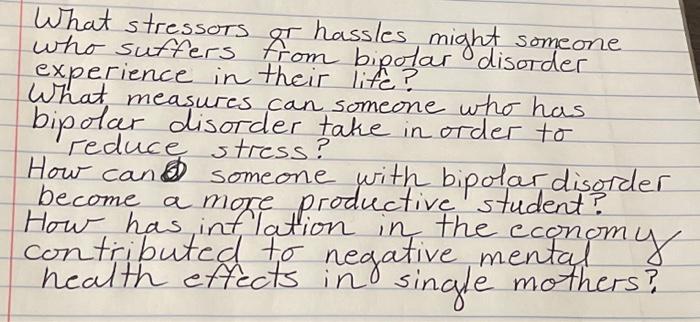 What stressors or hassles might someone
who suffers from bipolar disorder
experience in their life?
What measures can someone who has
bipolar disorder take in order to
reduce stress?
How can someone with bipolar disorder
become a more productive student?
How has inflation in the economy
contributed to negative mental
health effects in single mothers?